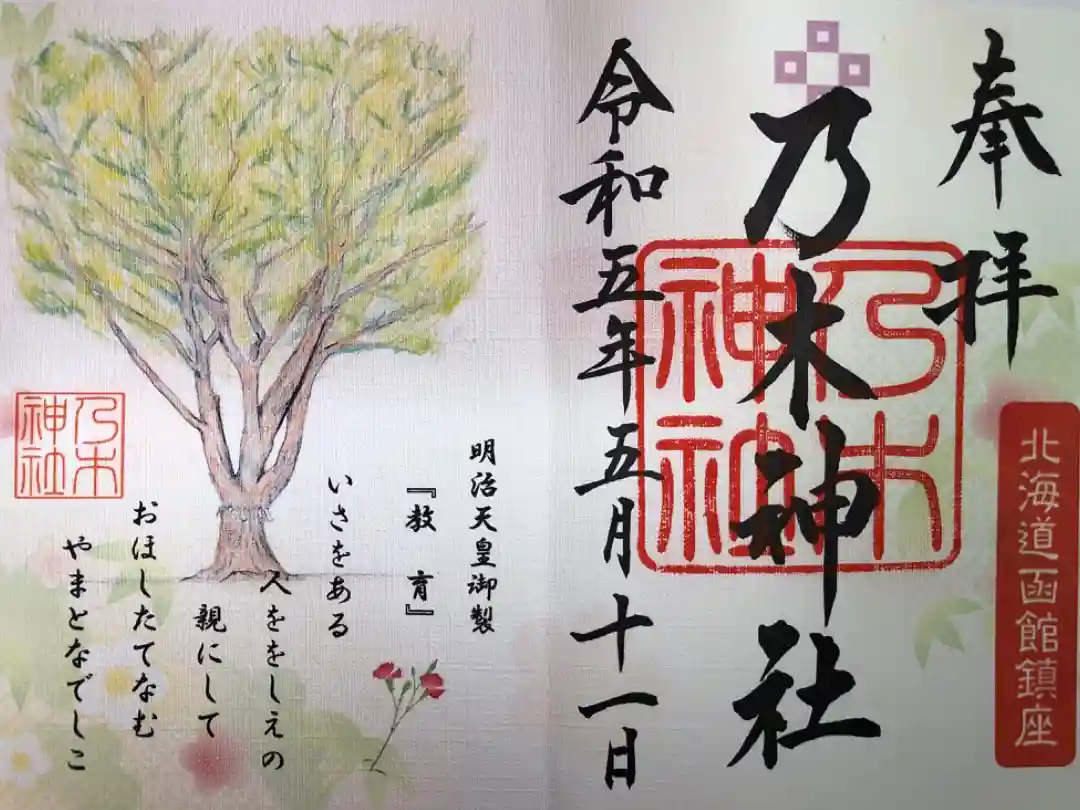 奉拝
乃木神社
乃木神社
令和五年五月十一日
北海道函館鎮座
明治天皇御製
『教育』
いさをある
人ををしえの
親にして
おほしたてなむ
やまとなでしこ
乃木神社